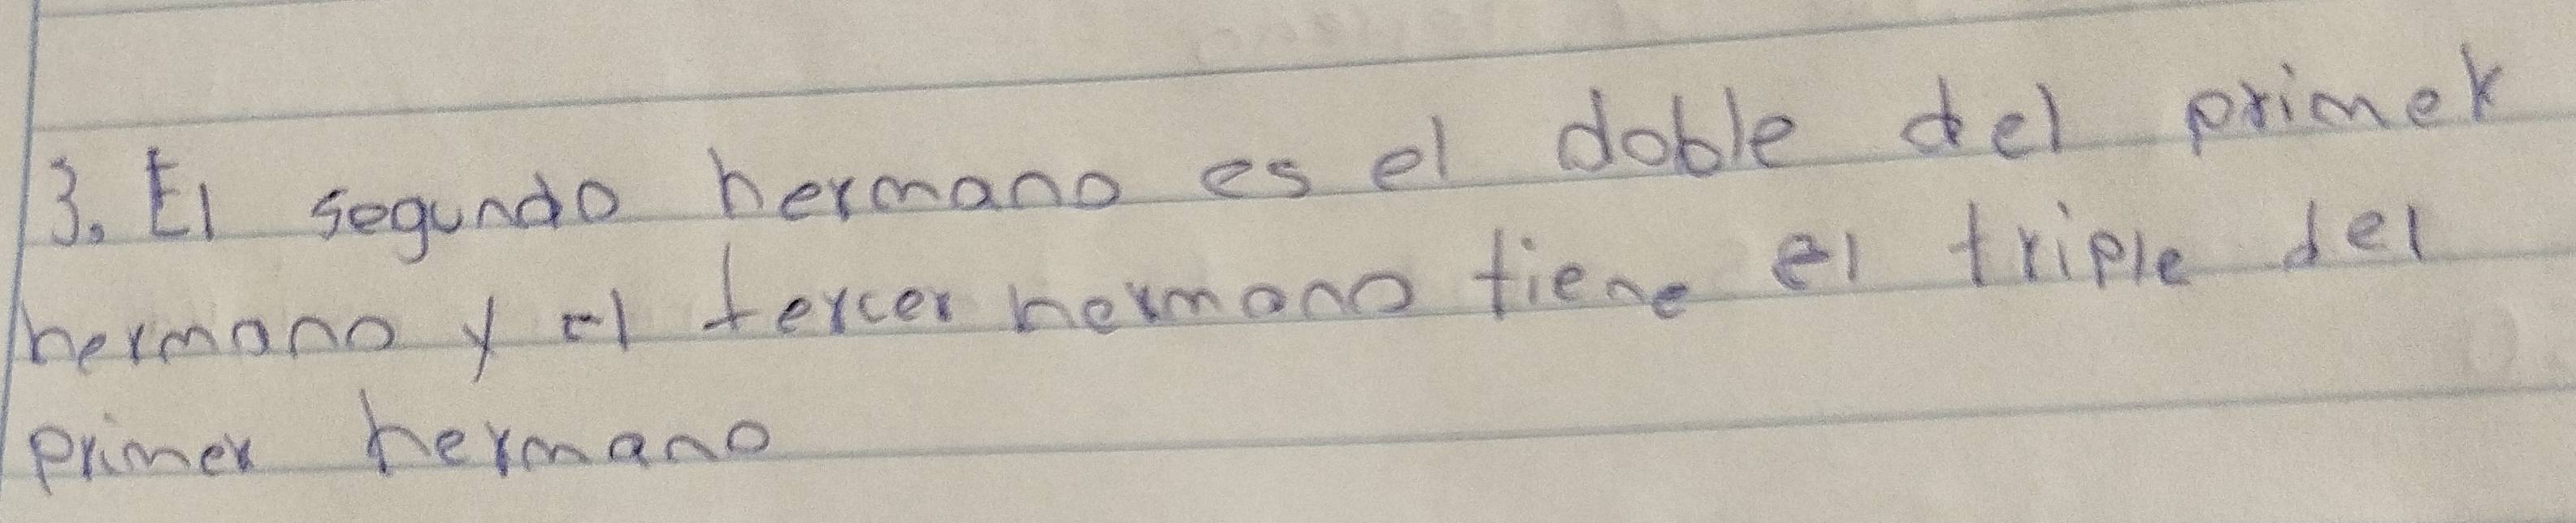 3. El segundo hermano es el doble del primer
hermano y el tercer hermano tiene el triple del
primer hermano